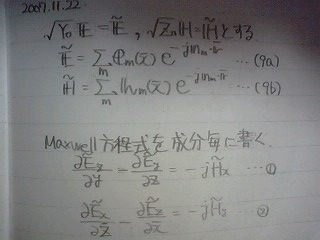 2007.11.22
√Y₀ 𝔼 = 𝔼̃ , √Z₀ ℍ = ℍ̃ とする
𝔼̃ = Σ_m 𝕖_m(x̄) e^{-j𝕟_m·r̄} … (9a)
ℍ̃ = Σ_m 𝕙_m(x̄) e^{-j𝕟_m·r̄} … (9b)
Maxwell方程式を成分毎に書く
∂Ẽz/∂ȳ − ∂Ẽy/∂z̄ = −jH̃x … ①
∂Ẽx/∂z̄ − ∂Ẽz/∂x̄ = −jH̃y … ②